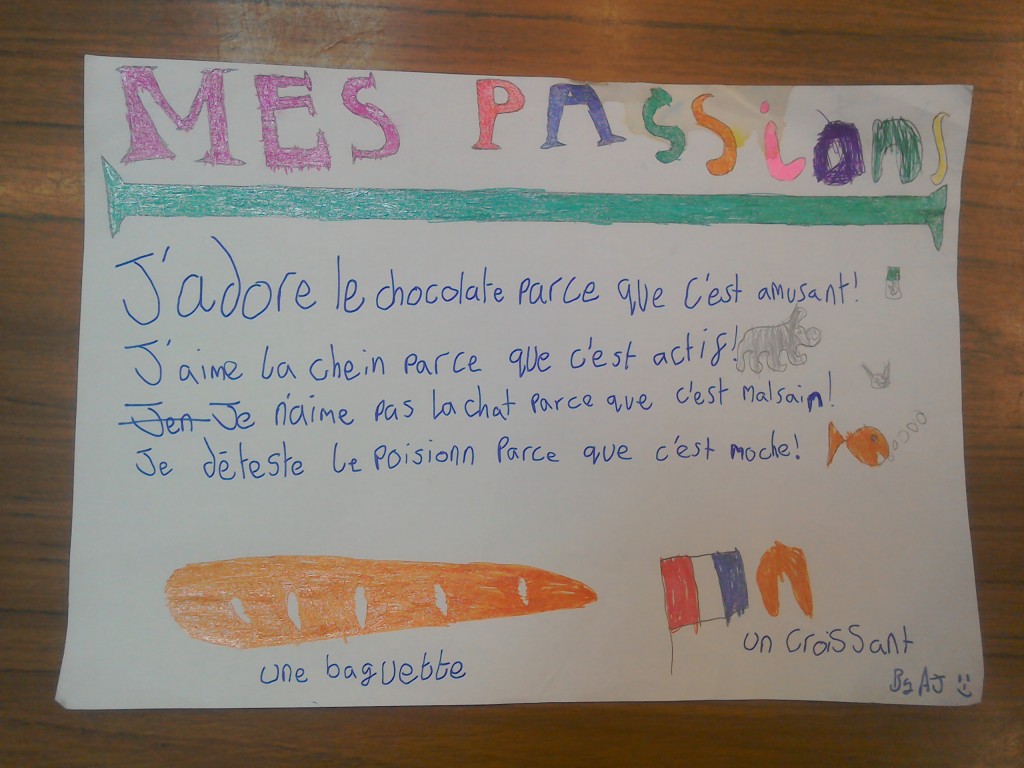 MES PASSionS
J'adore le chocolate parce que c'est amusant!
J'aime la chein parce que c'est actif!
Jen Je n'aime pas la chat parce que c'est malsain!
Je déteste le poisionn parce que c'est moche!
une baguette
un croissant
By AJ